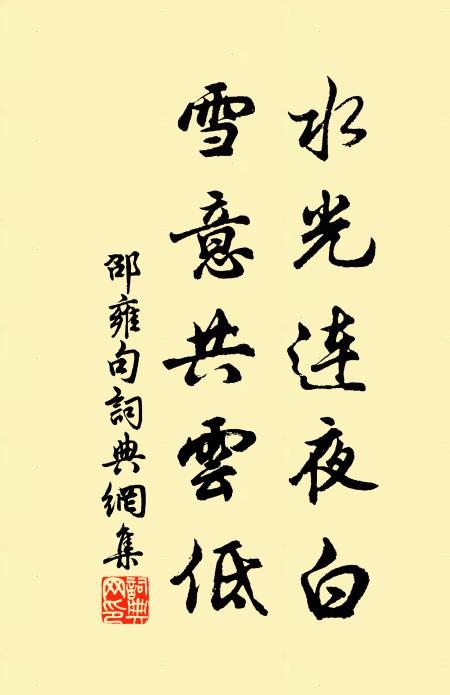 水光連夜白
雪意共雲低
邵雍句詞典網集
詞典網印